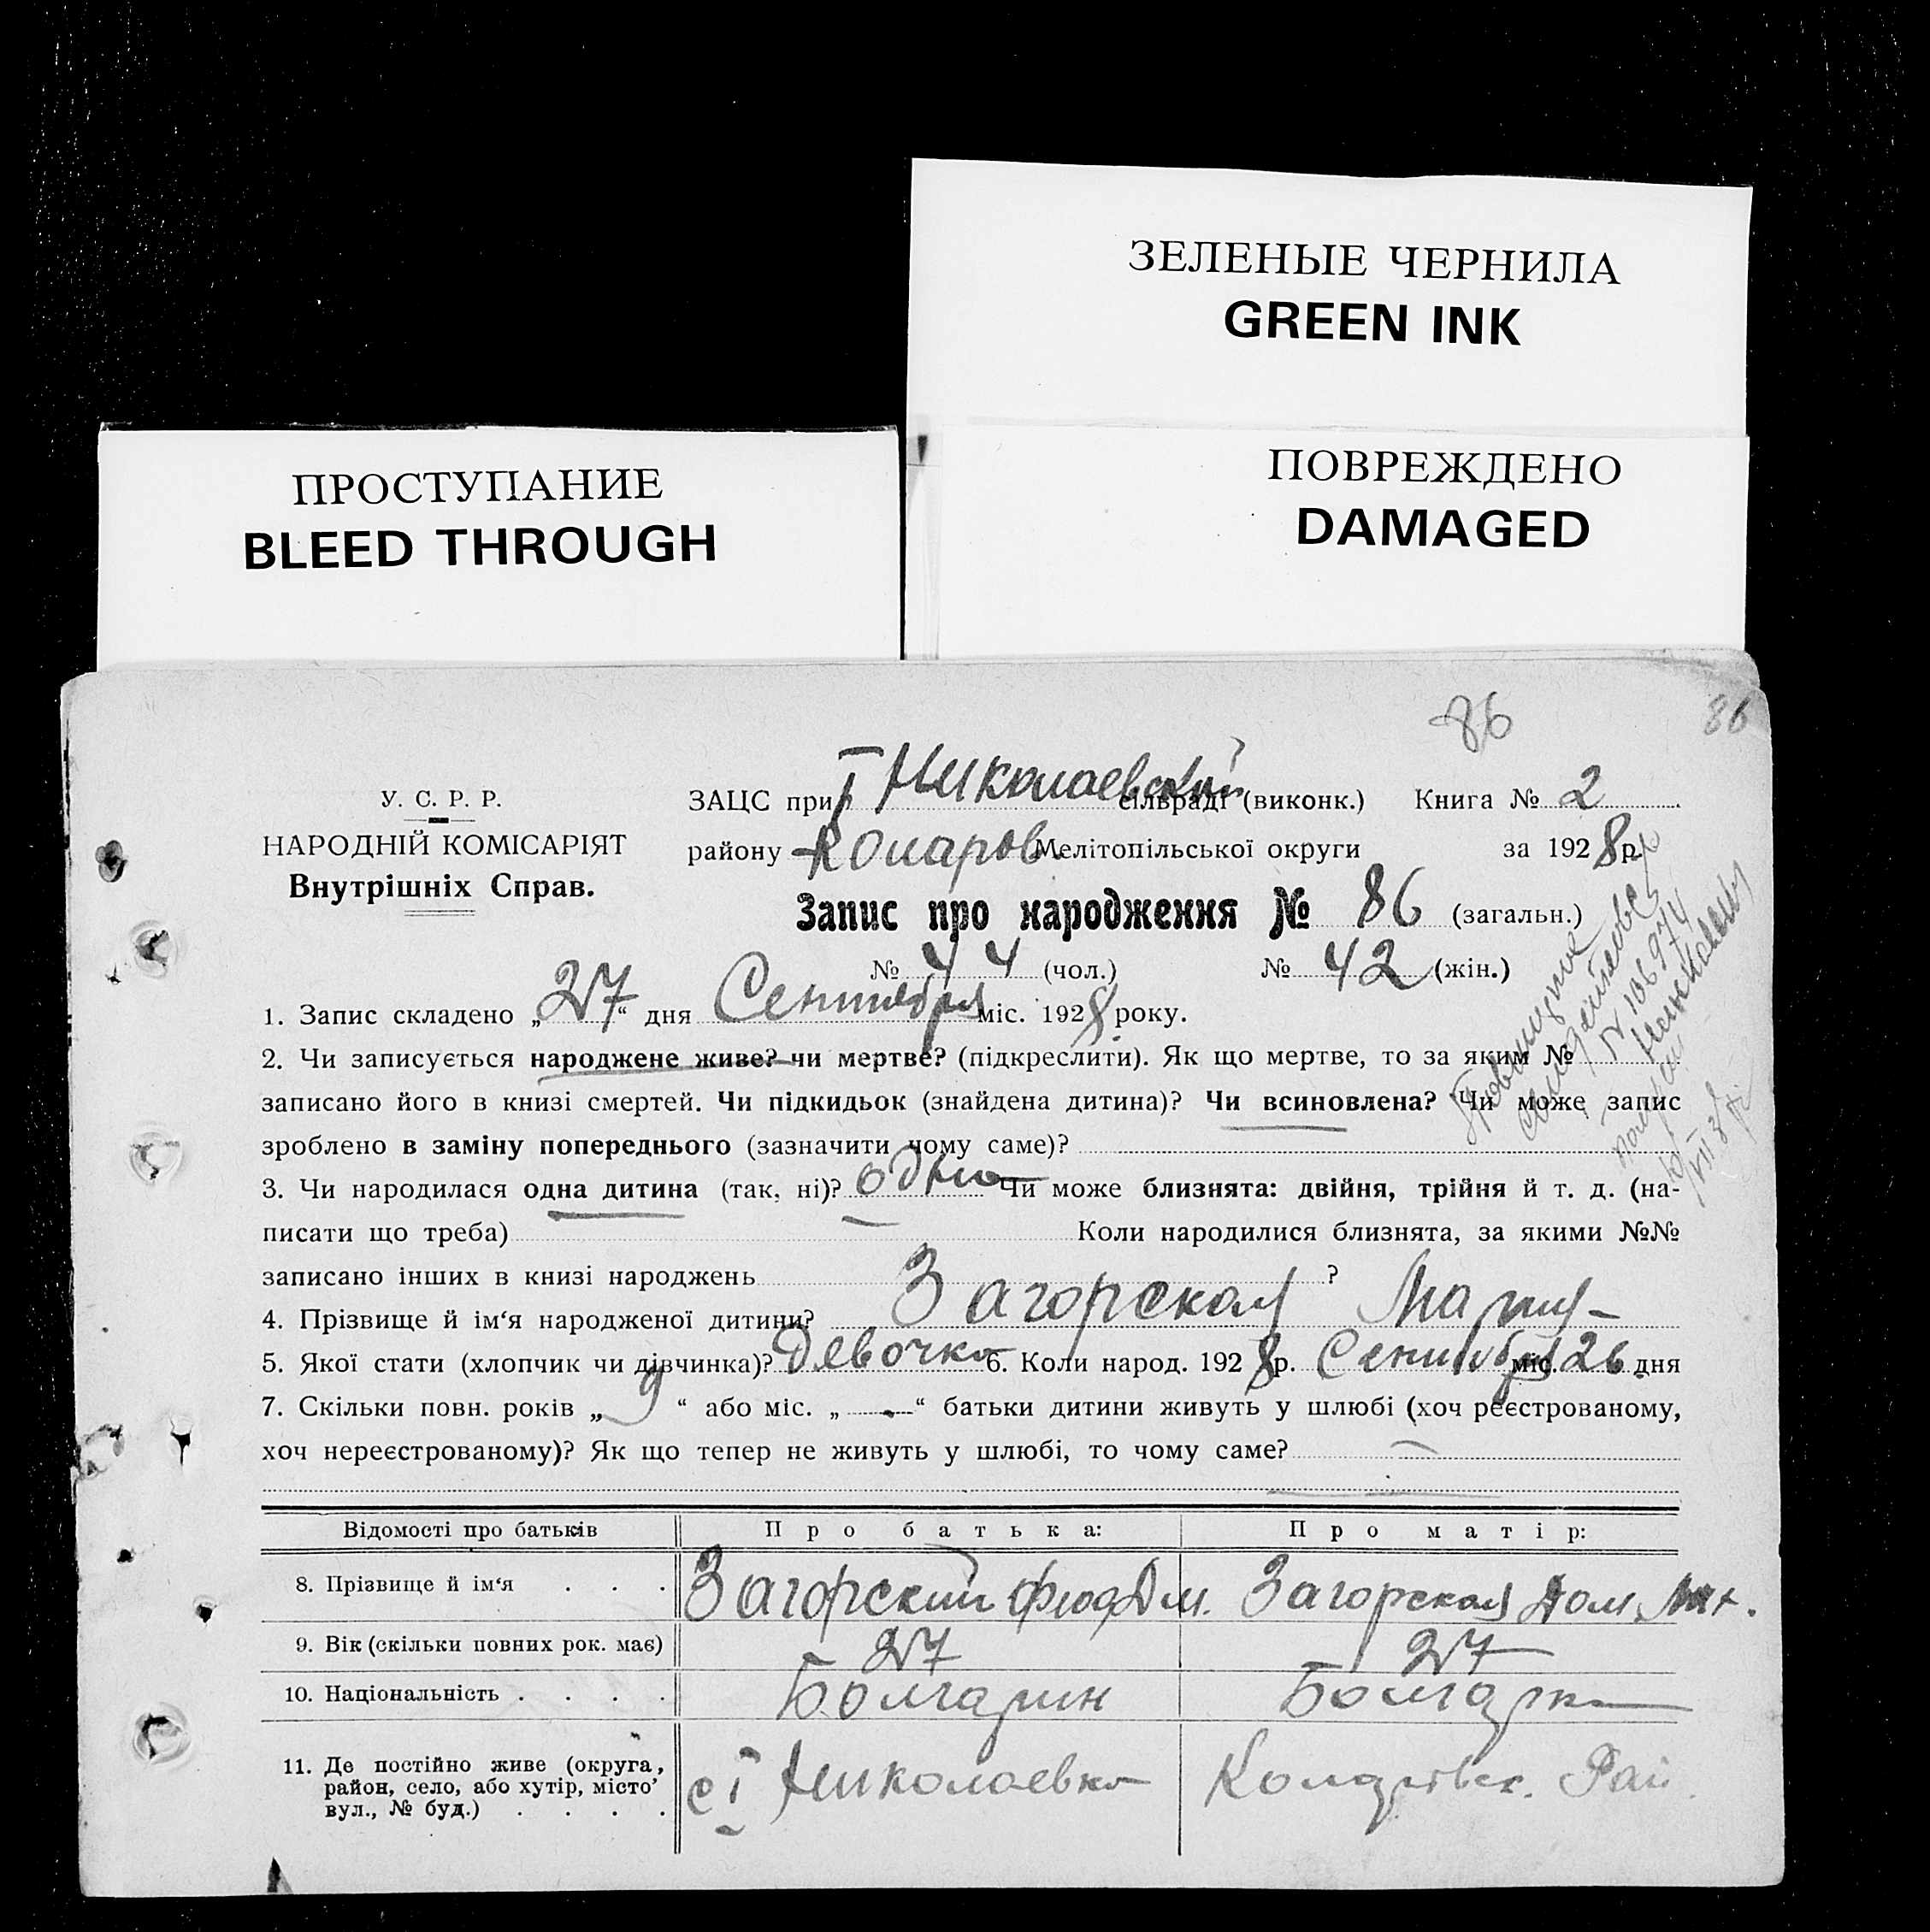 ЗЕЛЕНЫЕ ЧЕРНИЛА
GREEN INK
ПРОСТУПАНИЕ
BLEED THROUGH
ПОВРЕЖДЕНО
DAMAGED
86
86
У. С. Р. Р.
НАРОДНІЙ КОМІСАРІЯТ
Внутрішніх Справ.
ЗАЦС при І Николаевский сільраді (виконк.) Книга № 2
району Коларов. Мелітопільської округи за 1928 р.
Запис про народження № 86 (загальн.)
№ 44 (чол.) № 42 (жін.)
1. Запис складено „27“ дня Сентября міс. 1928 року.
2. Чи записується народжене живе? чи мертве? (підкреслити). Як що мертве, то за яким №
записано його в книзі смертей. Чи підкидьок (знайдена дитина)? Чи всиновлена? Чи може запис
зроблено в заміну попереднього (зазначити чому саме)?
3. Чи народилася одна дитина (так, ні)? одна Чи може близнята: двійня, трійня й т. д. (на-
писати що треба) Коли народилися близнята, за якими №№
записано інших в книзі народжень ?
4. Прізвище й ім‘я народженої дитини? Загорская Мария
5. Якої стати (хлопчик чи дівчинка)? Девочка 6. Коли народ. 1928 р. Сентября міс. 26 дня
7. Скільки повн. років „ 9 “ або міс. „ — “ батьки дитини живуть у шлюбі (хоч реєстрованому,
хоч нереєстрованому)? Як що тепер не живуть у шлюбі, то чому саме? —
Відомості про батьків Про батька: Про матір:
8. Прізвище й ім‘я . . . Загорский Феод Дм. Загорская Дом.
9. Вік (скільки повних рок. має) 27 27
10. Національність . . . . Болгарин Болгарка
11. Де постійно живе (округа, район, село, або хутір, місто’ вул., № буд.) . . . . с І Николаевка Коларовск. Рай.